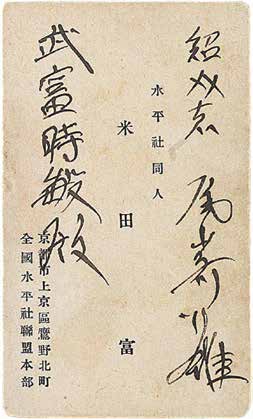 紹介者 尾崎行雄
水平社同人
米田富
武富時敏殿
京都市上京區鷹野北町
全國水平社聯盟本部